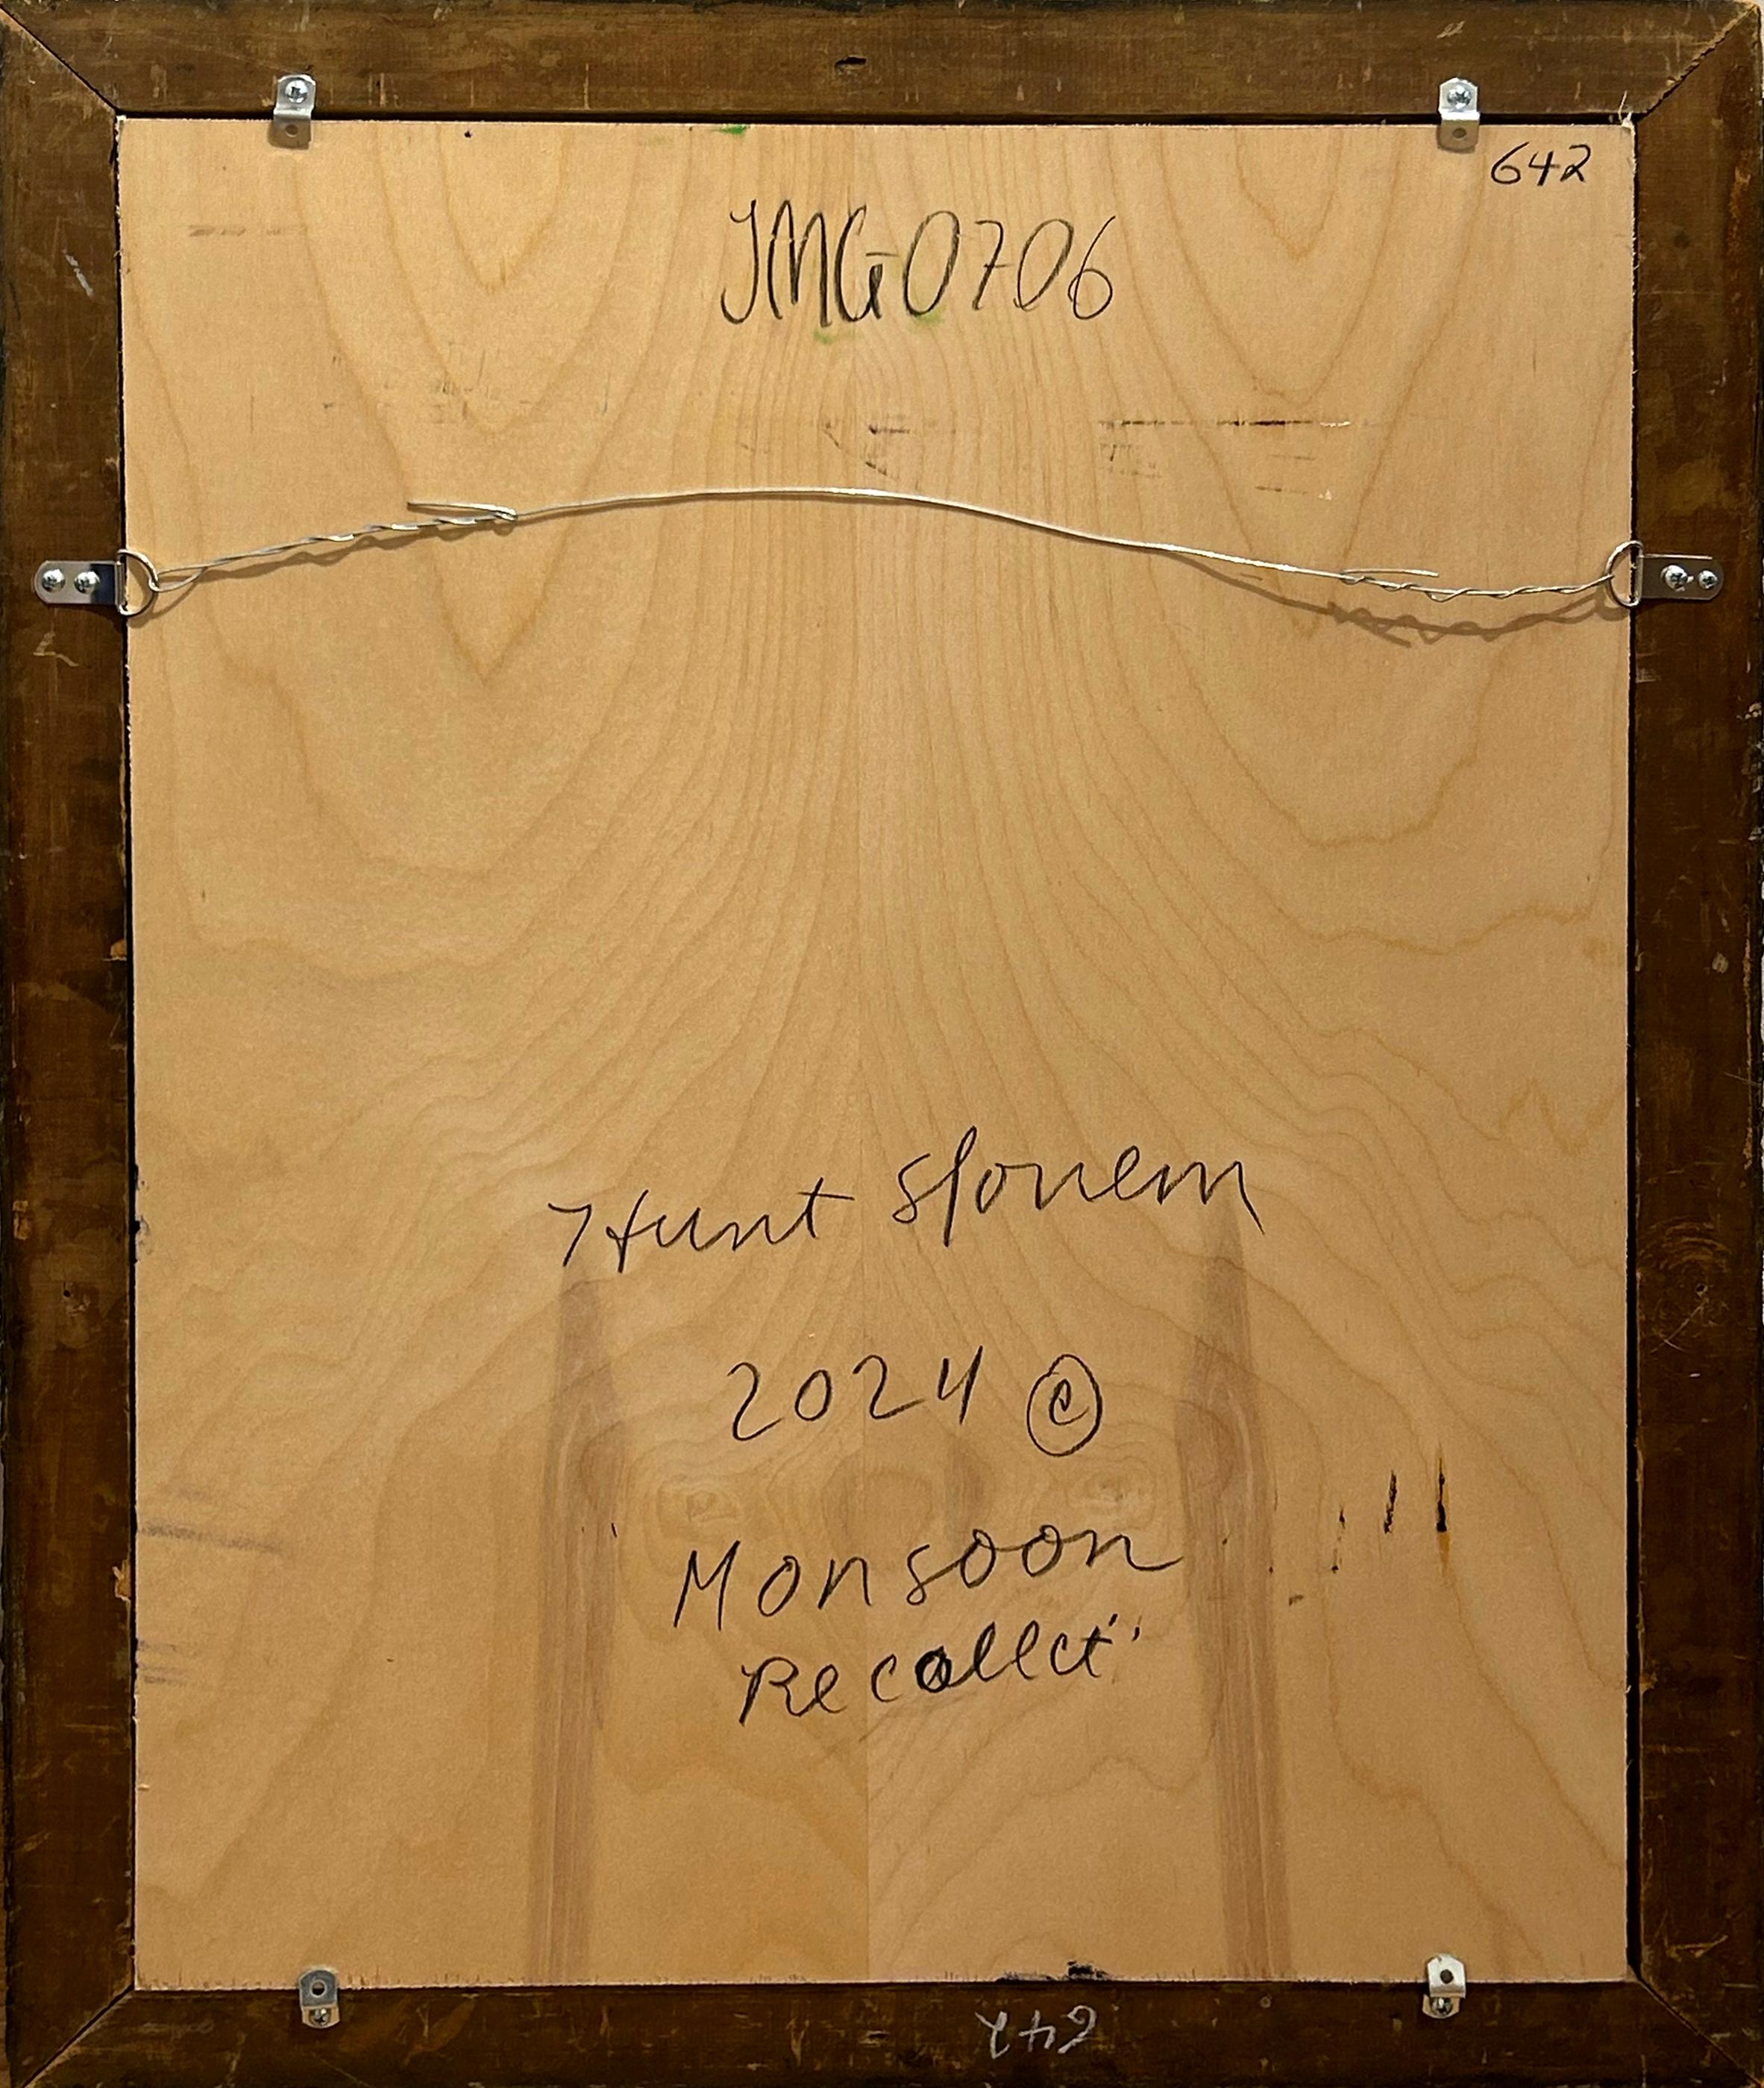 642
JMG0706
Hunt Slonem
2024 ©
Monsoon
Recollect
642